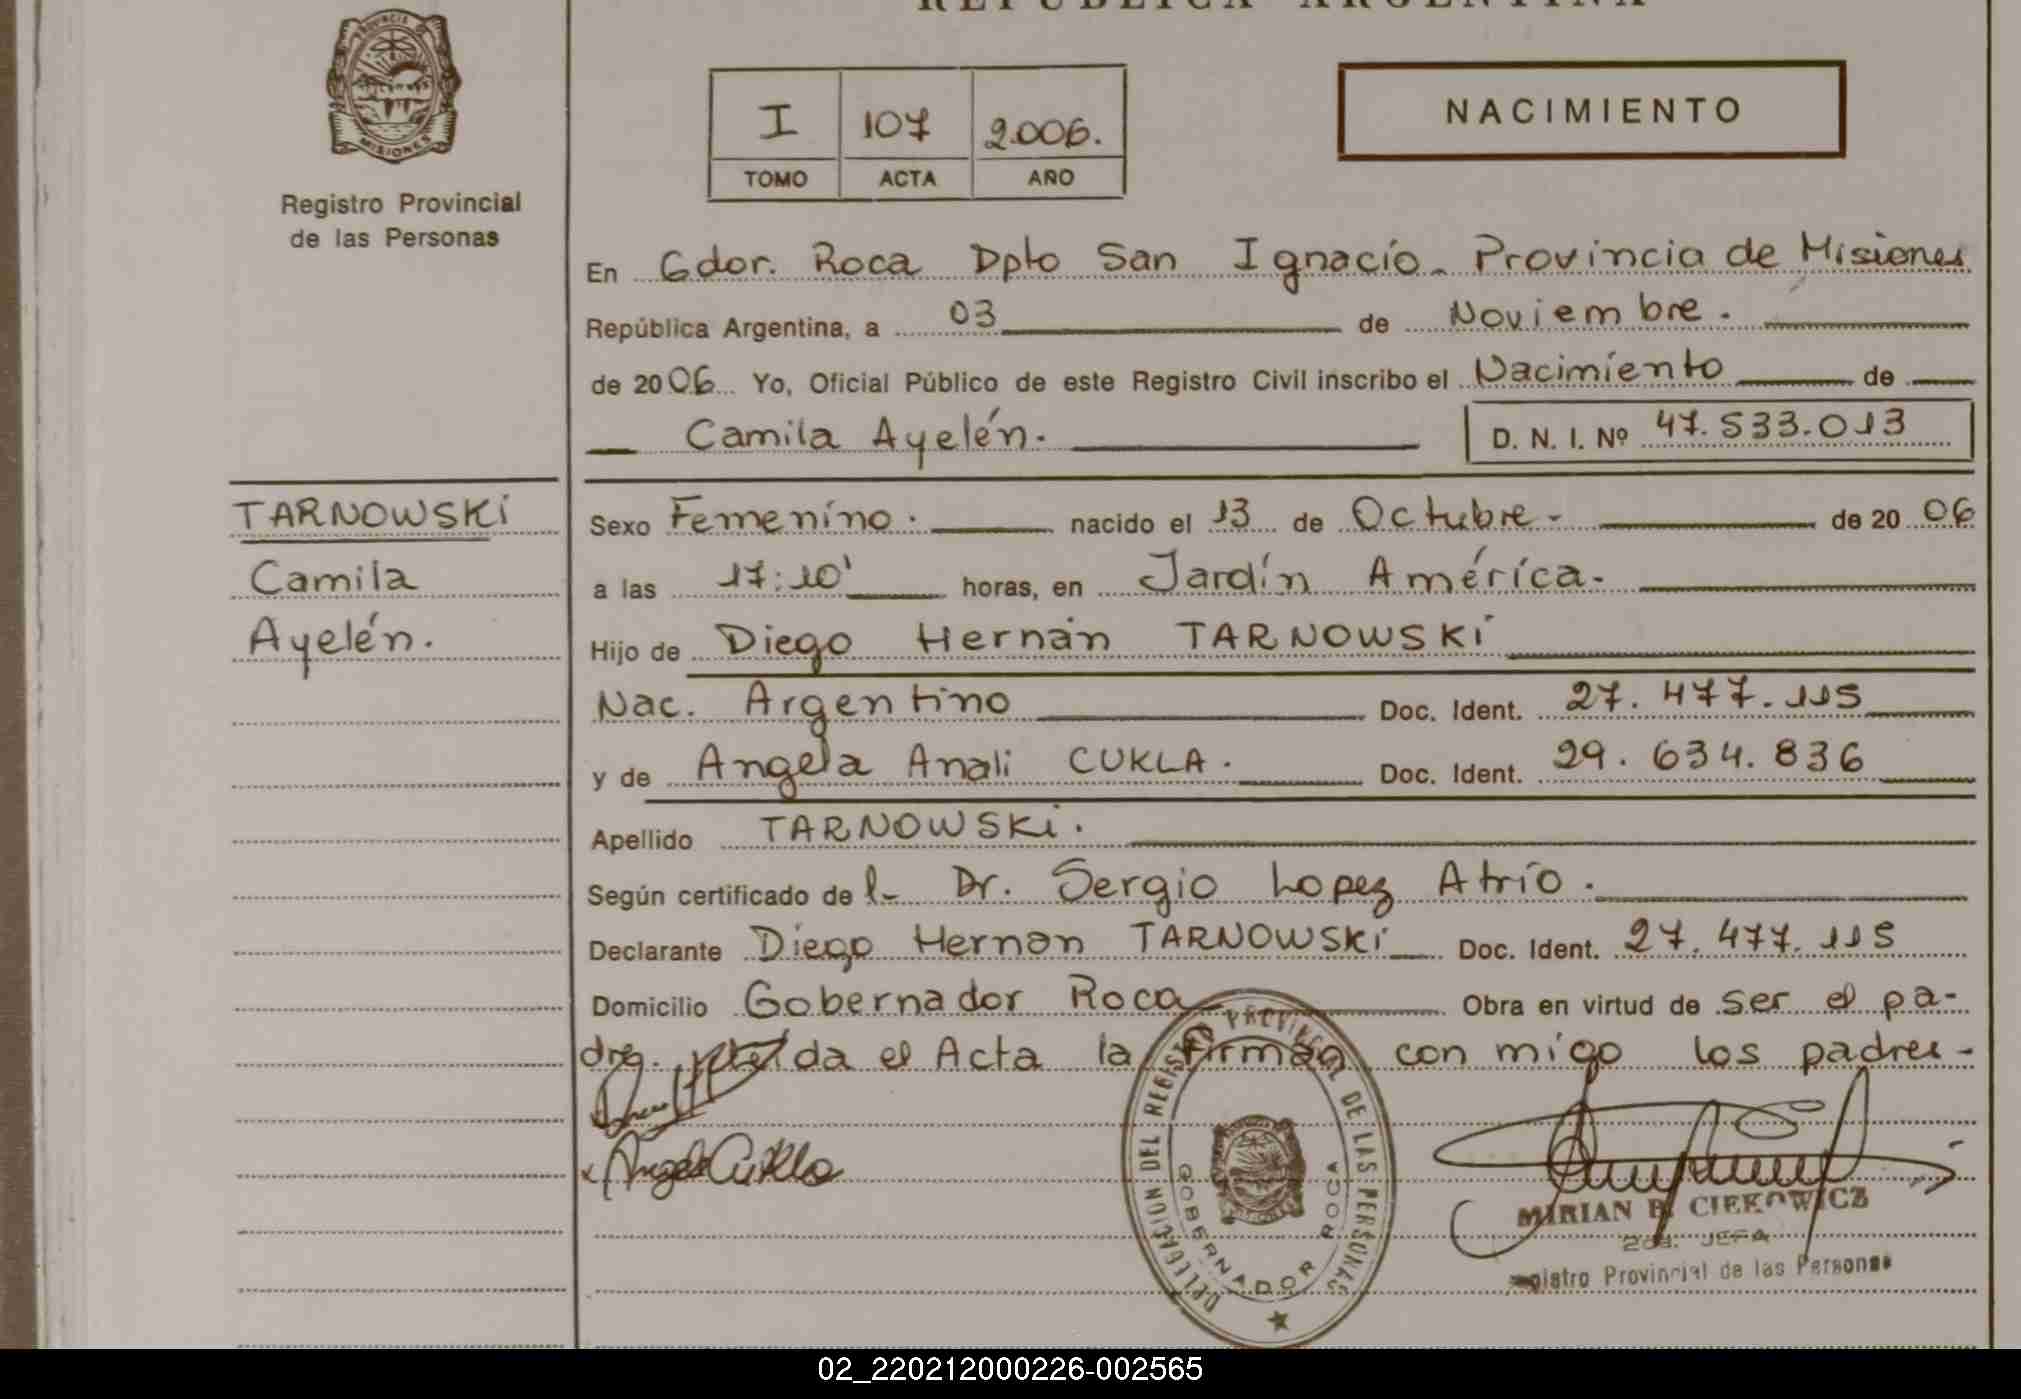 REPUBLICA ARGENTINA
PROVINCIA
MISIONES
Registro Provincial
de las Personas
I 107 2.006.
TOMO ACTA AÑO
NACIMIENTO
En Gdor. Roca Dpto San Ignacio. Provincia de Misiones
República Argentina, a 03 de Noviembre.
de 2006 Yo, Oficial Público de este Registro Civil inscribo el Nacimiento de
Camila Ayelén. D. N. I. Nº 47.533.013
TARNOWSKI
Camila
Ayelén.
Sexo Femenino. nacido el 13 de Octubre- de 20 06
a las 17:10' horas, en Jardín América.
Hijo de Diego Hernán TARNOWSKI
Nac. Argentino Doc. Ident. 27.477.115
y de Angela Anali CUKLA. Doc. Ident. 29.634.836
Apellido TARNOWSKI.
Según certificado de l- Dr. Sergio Lopez Atrio.
Declarante Diego Hernan TARNOWSKI Doc. Ident. 27.477.115
Domicilio Gobernador Roca Obra en virtud de ser el pa-
dre. leída el Acta la firman con migo los padres-
Angela Cukla
DELEGACION DEL REGISTRO PROVINCIAL DE LAS PERSONAS
GOBERNADOR ROCA
MIRIAN B. CIEKOWICZ
2da. JEFA
Registro Provincial de las Personas
02_220212000226-002565